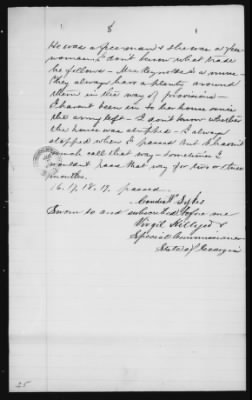 8 1
He was a free man & she was a free
woman. I don't know what trade
he follows - Mrs Reynolds is a nurse -
they always have a plenty around
them in the way of provisions -
I havent been in to her house since
the army left - I don't know whether
the house was stripped - I always
stopped when I passed but I havent
much call that way - sometimes I
wouldn't pass that way for two or three
months.
16. 17. 18. 19. passed.
Sykes
Sworn to and subscribed before me
Virgil Hillyer
Special Commissioner
State of Georgia
25